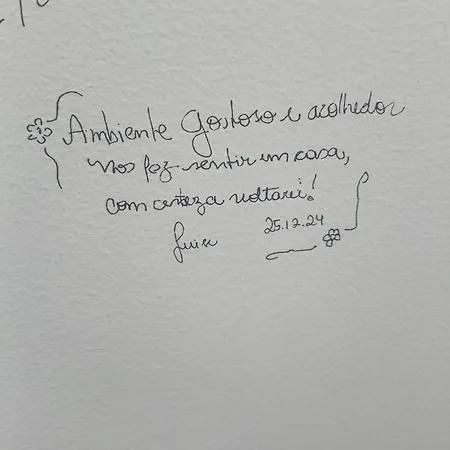 Ambiente Gostoso e acolhedor
nos fez sentir em casa,
com certeza voltarei!
25.12.24